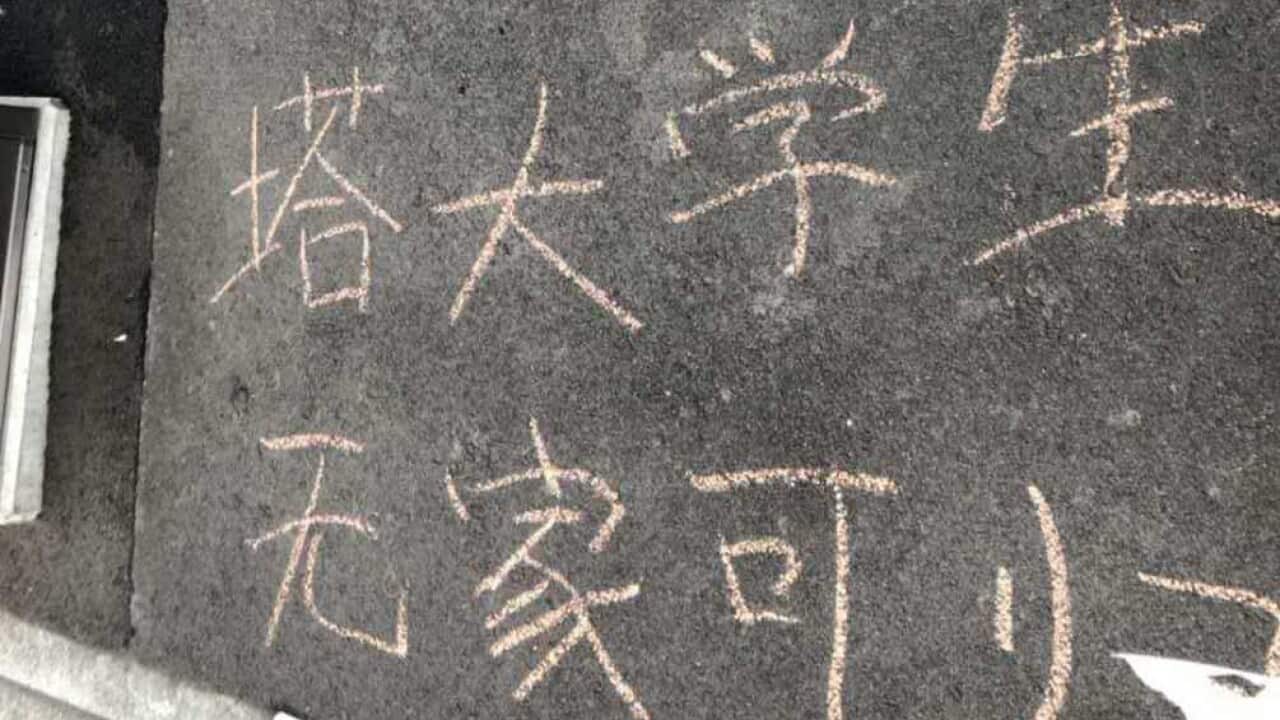 塔大学生
无家可归